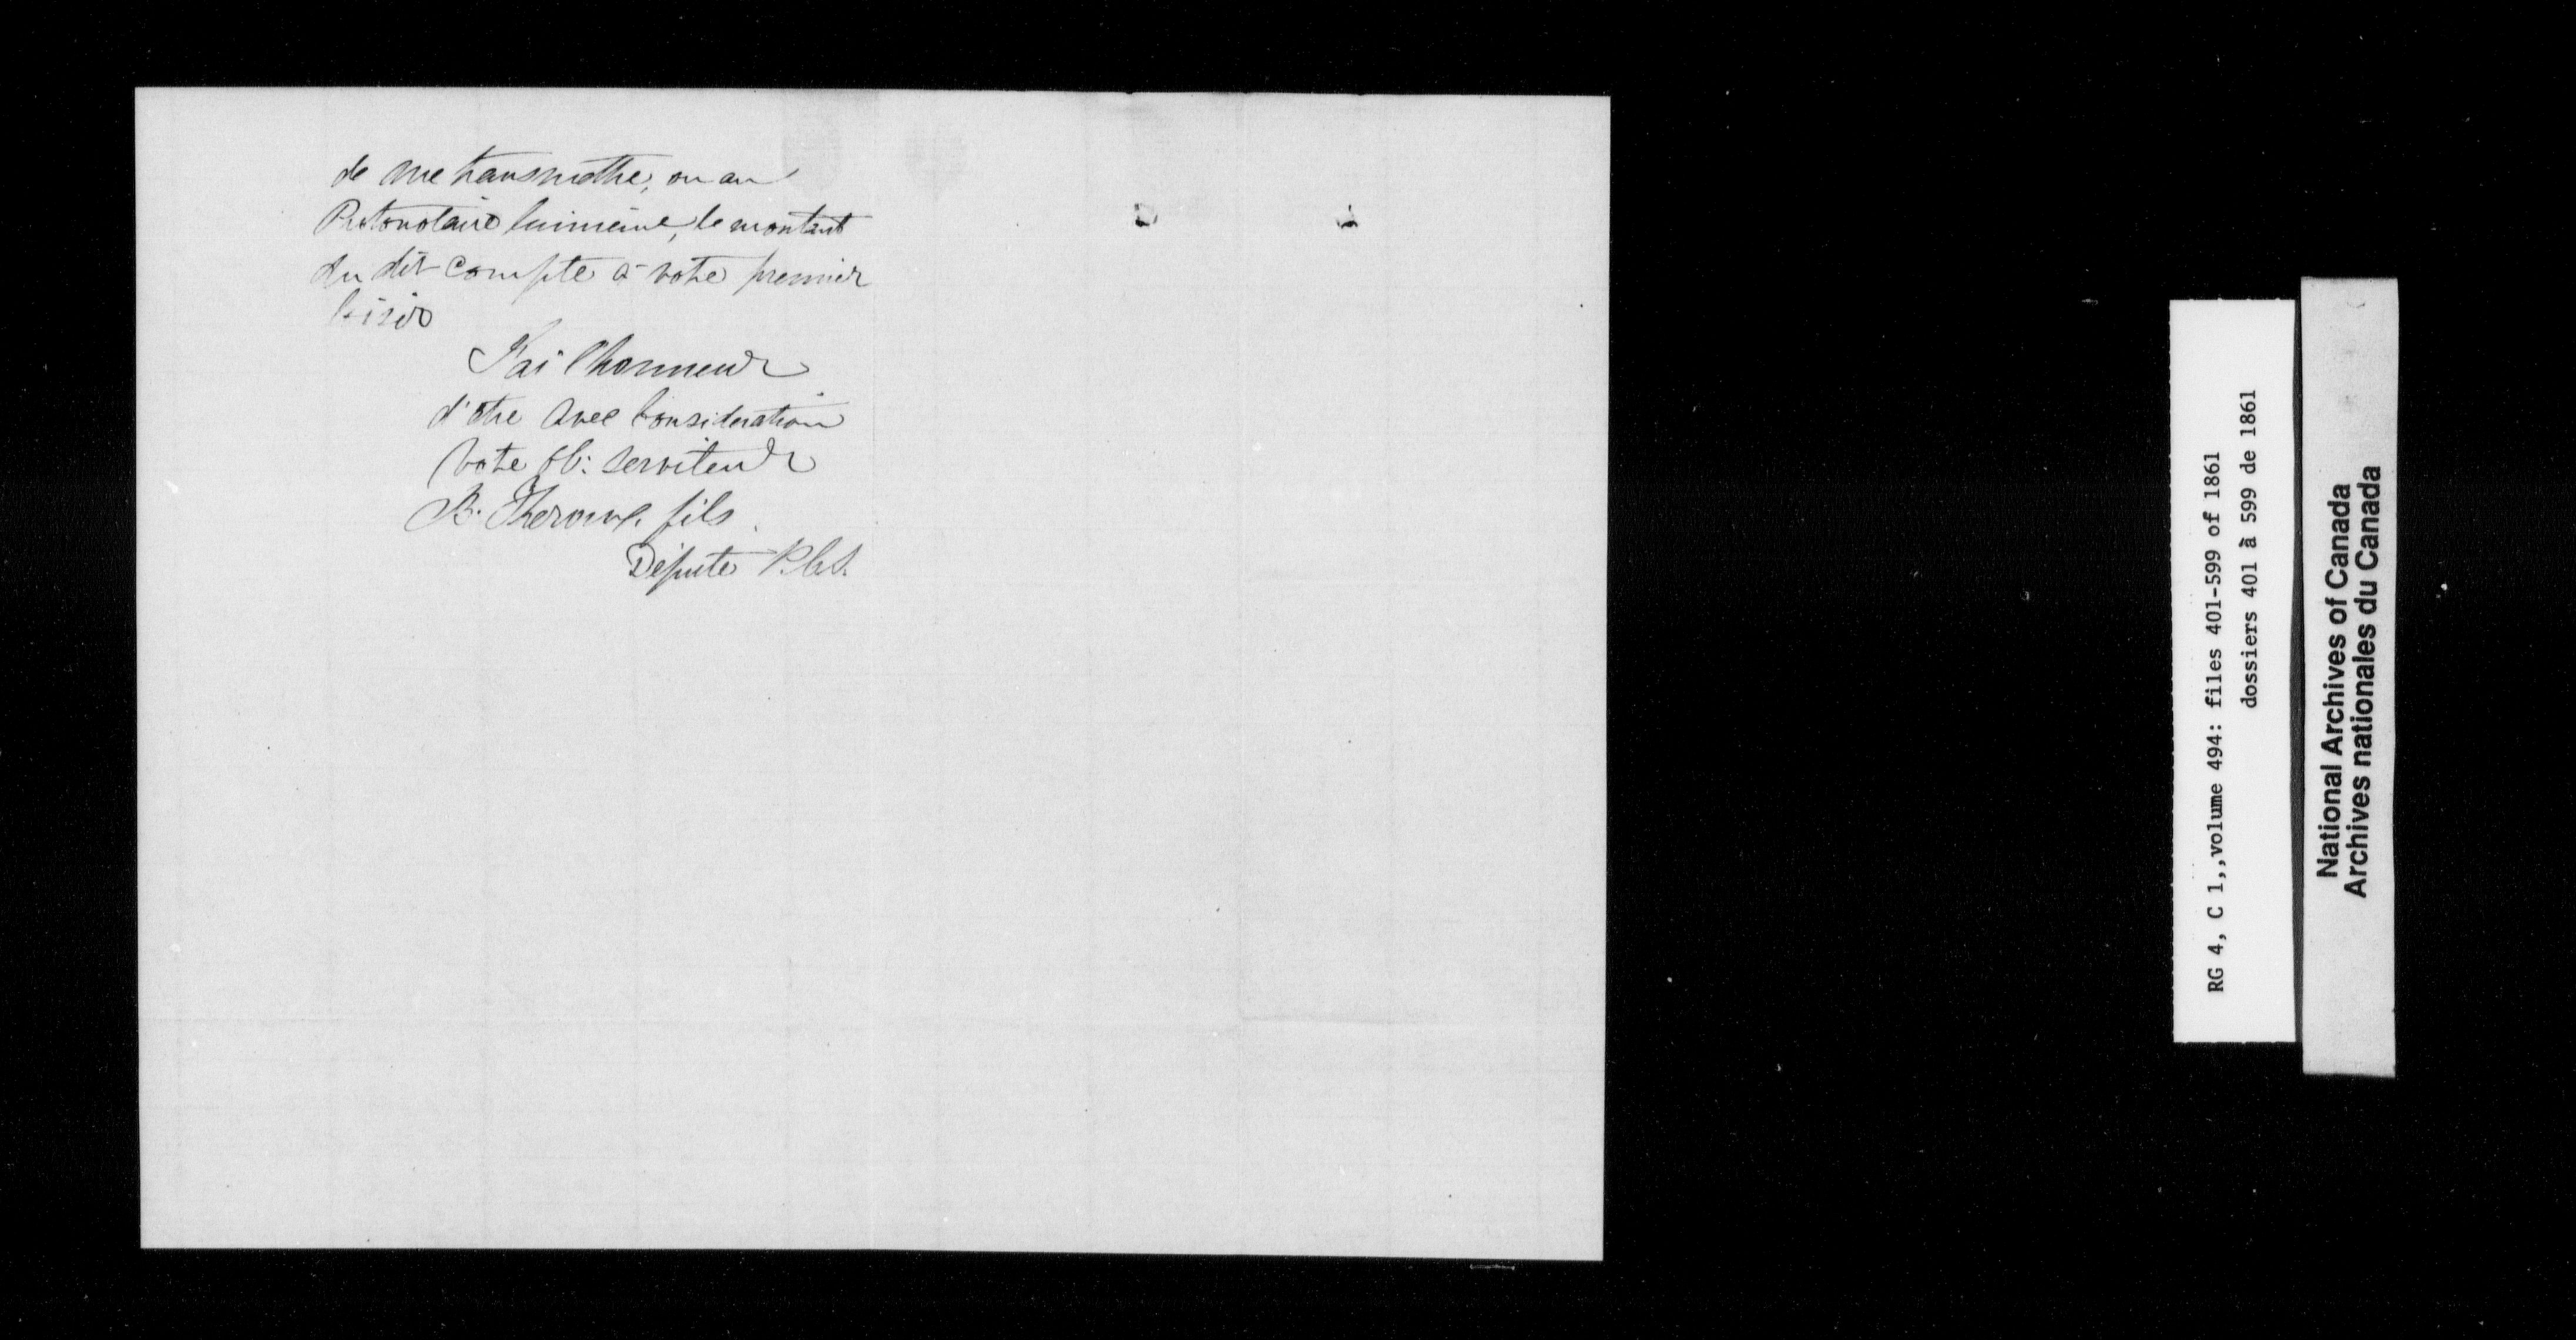 de me transmettre, ou au
Protonotaire luimême, le montant
du dit Compte à votre premier
loisir
J'ai l'honneur
d'être avec Considération
Votre ob: serviteur
fils
Député P.C.S.
RG 4, C 1,,volume 494: files 401-599 of 1861
dossiers 401 à 599 de 1861
National Archives of Canada
Archives nationales du Canada